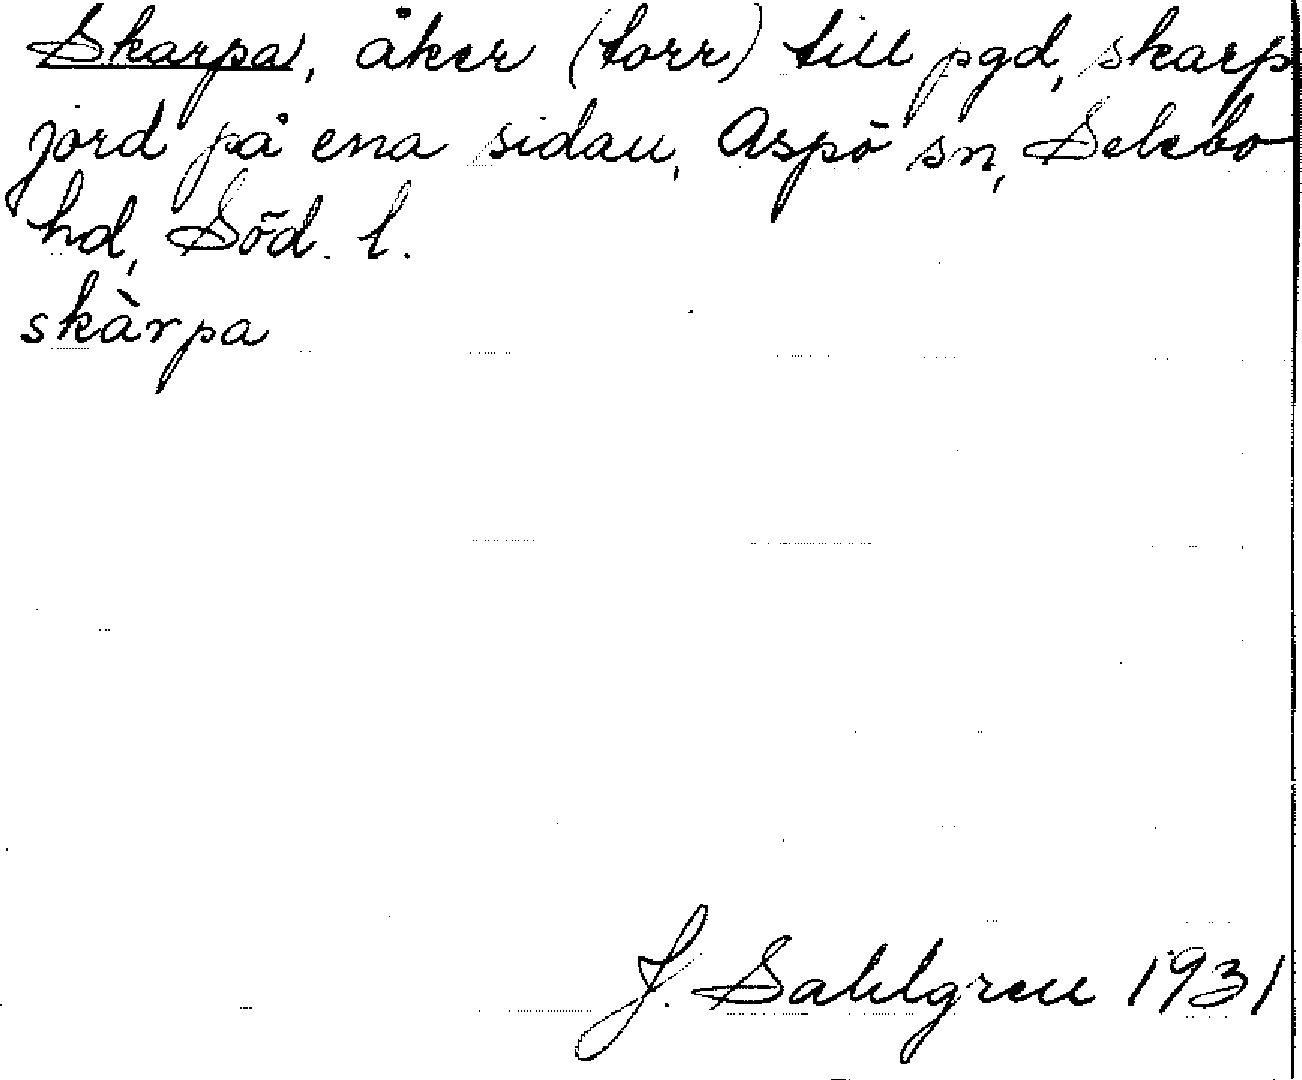 Skarpa, åker (torr) till pgd, skarp
jord på ena sidan, Aspö sn, Selebo
hd, Söd. l.
skàrpa
J. Sahlgren 1931